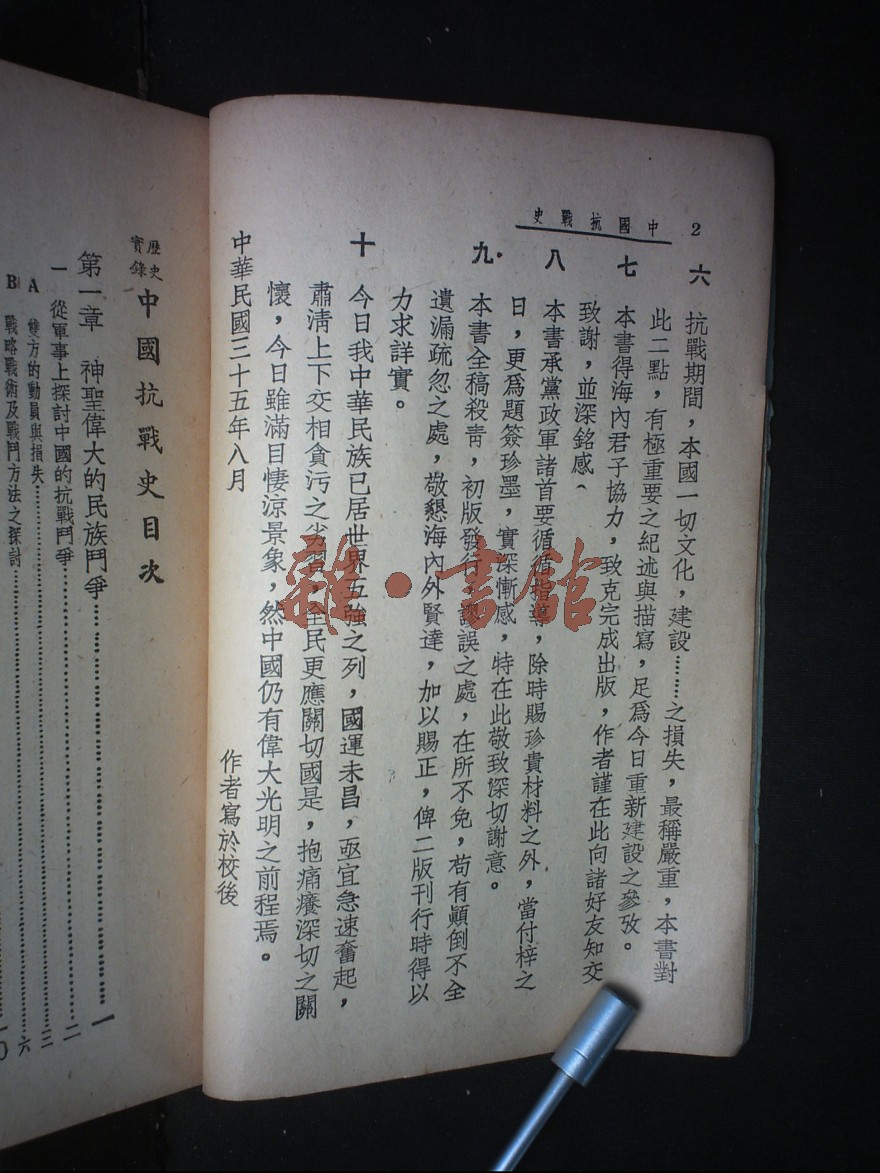 2
中國抗戰史
六 抗戰期間，本國一切文化，建設……之損失，最稱嚴重，本書對
此二點，有極重要之紀述與描寫，足爲今日重新建設之參攷。
七 本書得海內君子協力，致克完成出版，作者謹在此向諸好友知交
致謝，並深銘感、
八 本書承黨政軍諸首要循循指導，除時賜珍貴材料之外，當付梓之
日，更爲題簽珍墨，實深慚感，特在此敬致深切謝意。
九 本書全稿殺靑，初版發行，謬誤之處，在所不免，苟有顚倒不全
遺漏疏忽之處，敬懇海內外賢達，加以賜正，俾二版刊行時得以
力求詳實。
十 今日我中華民族已居世界五強之列，國運未昌，亟宜急速奮起，
肅淸上下交相貪污之劣習，全民更應關切國是，抱痛癢深切之關
懷，今日雖滿目悽涼景象，然中國仍有偉大光明之前程焉。
中華民國三十五年八月
作者寫於校後
歷史實錄 中國抗戰史目次
第一章 神聖偉大的民族鬥爭……一
一 從軍事上探討中國的抗戰鬥爭……二
A 雙方的動員與損失……三
B 戰略戰術及戰鬥方法之探討……六
雜·書館